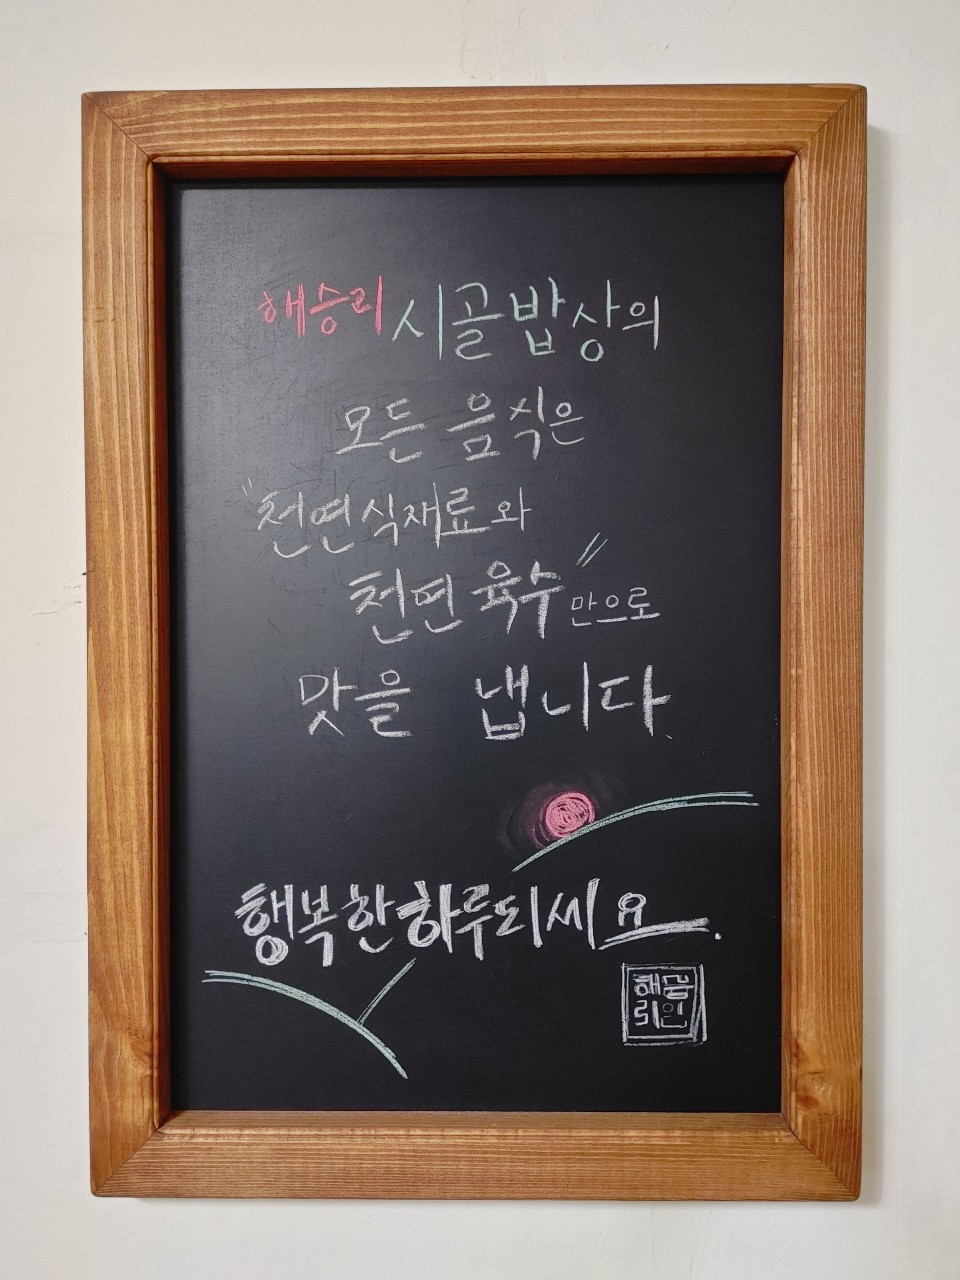 해승리 시골밥상의
모든 음식은
"천연식재료와
천연육수"만으로
맛을 냅니다.
행복한하루되세요.
해승
리인